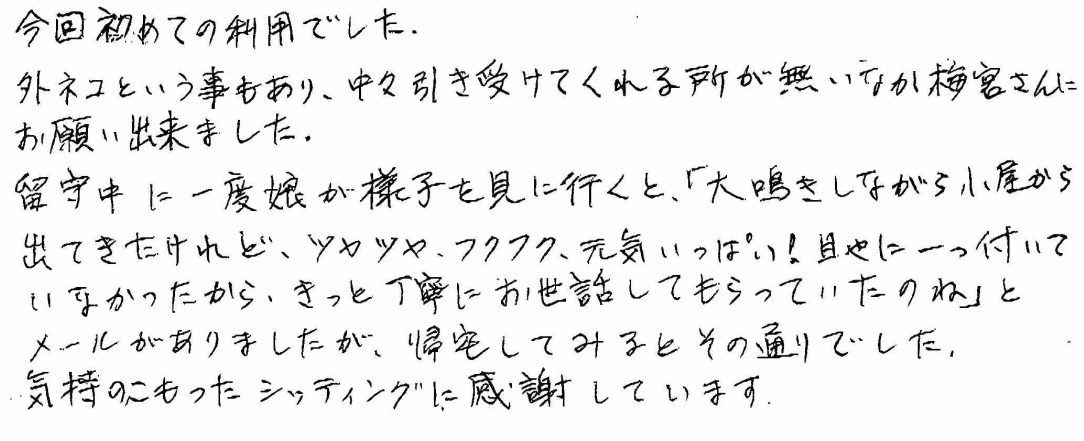 今回初めての利用でした.
外ネコという事もあり、中々引き受けてくれる所が無いなか梅宮さんに
お願い出来ました.
留守中に一度娘が様子を見に行くと、「大鳴きしながら小屋から
出てきたけれど、ツヤツヤ、フクフク、元気いっぱい!目やに一つ付いて
いなかったから、きっと丁寧にお世話してもらっていたのね」と
メールがありましたが、帰宅してみるとその通りでした.
気持のこもったシッティングに感謝しています.